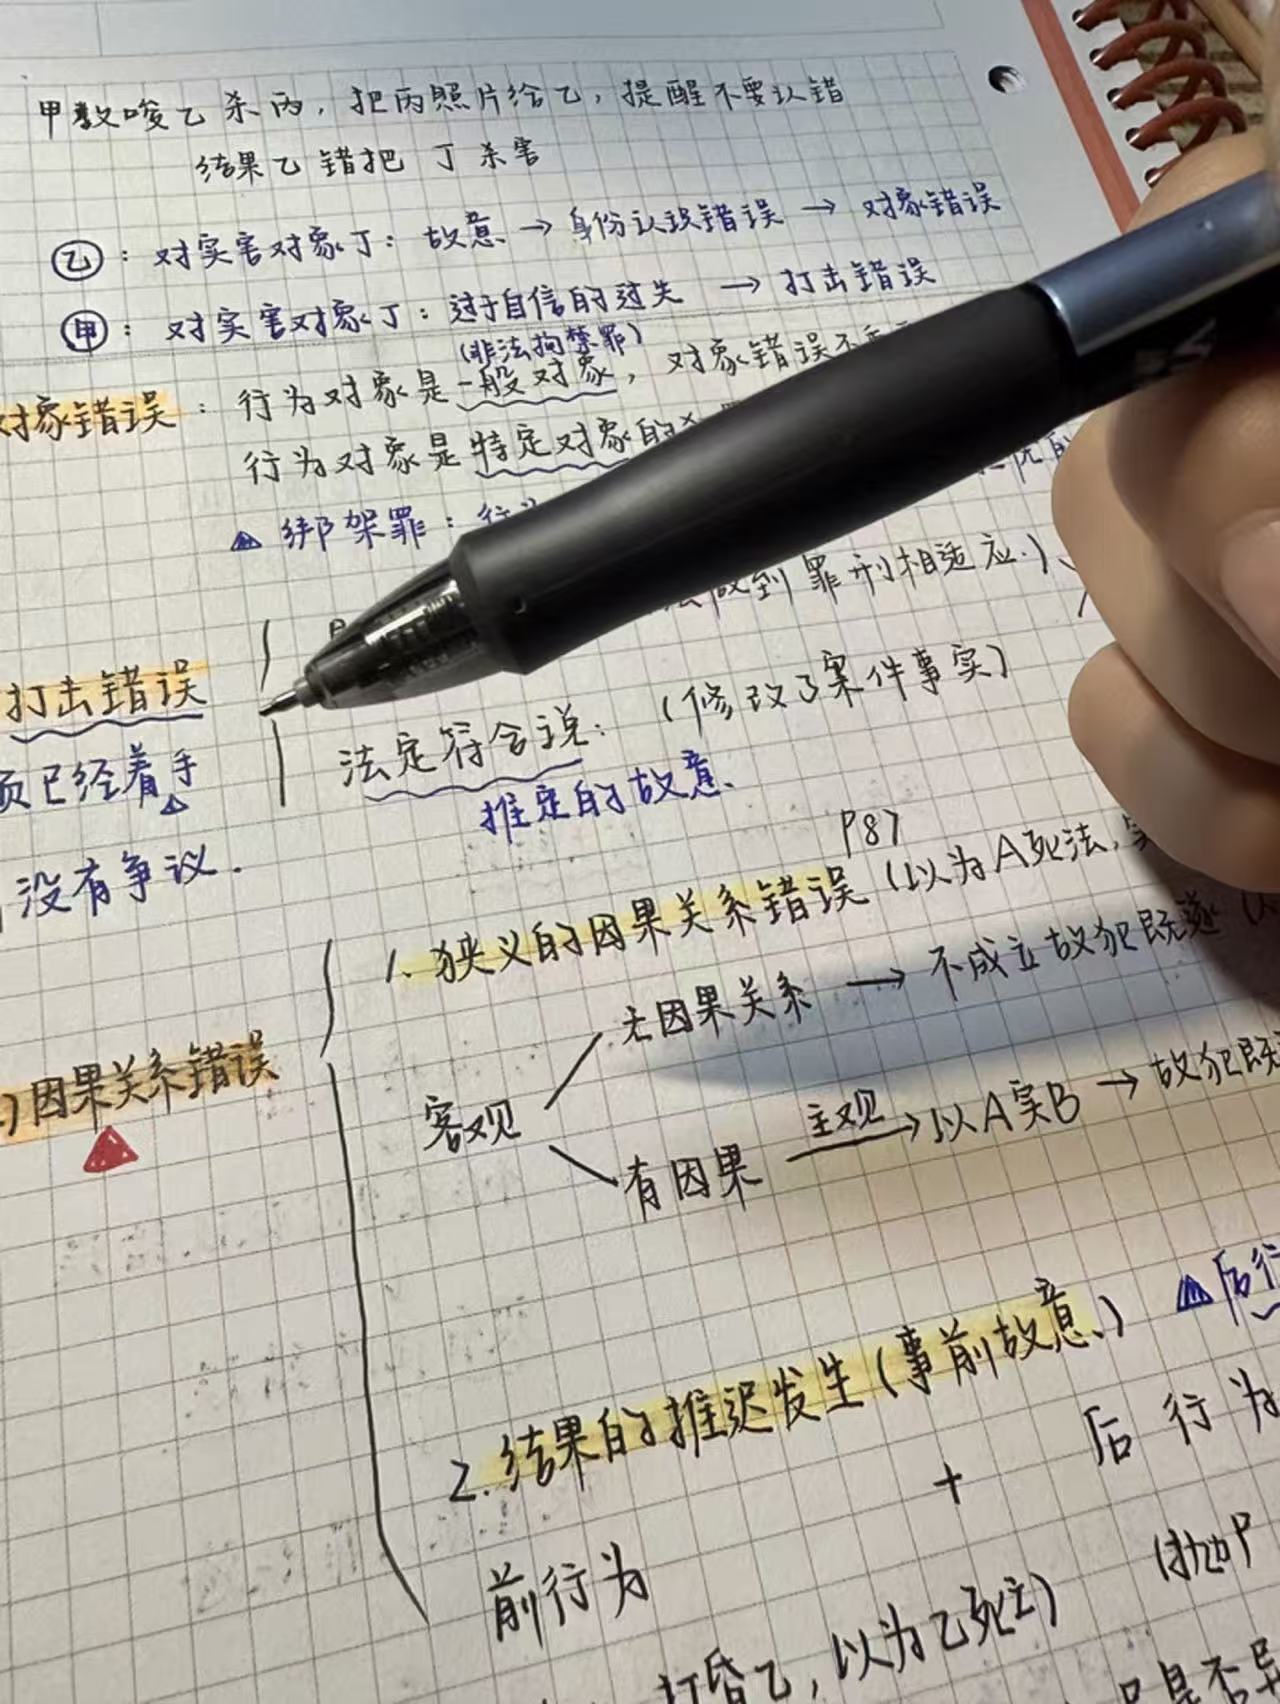 甲教唆乙杀丙，把丙照片给乙，提醒不要认错
结果乙错把丁杀害
乙：对实害对象丁：故意→身份认识错误→对象错误
甲：对实害对象丁：过于自信的过失→打击错误
(非法拘禁罪)
对象错误：行为对象是一般对象，对象错误不
行为对象是特定对象的
绑架罪：行为
做到罪刑相适应.)
打击错误
法定符合说：(修改了案件事实)
已经着手
推定的故意
没有争议.
P87
1. 狭义的因果关系错误(以为A死法,实
无因果关系→不成立故犯既遂(
因果关系错误
客观
有因果 主观→以A实B→故犯既
2. 结果的推迟发生(事前故意) 后行
前行为 + 后行为
打昏乙，以为乙死亡)
是否异